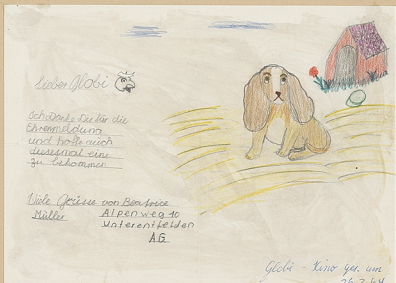 Lieber Globi
Ich Danke Dir für die
Ehrenmeldung
und hoffe auch
diesesmal eine
zu bekommen
Viele Grüsse von Beatrice
Müller Alpenweg 10
Unterentfelden
AG
Globi - Kino ges. am